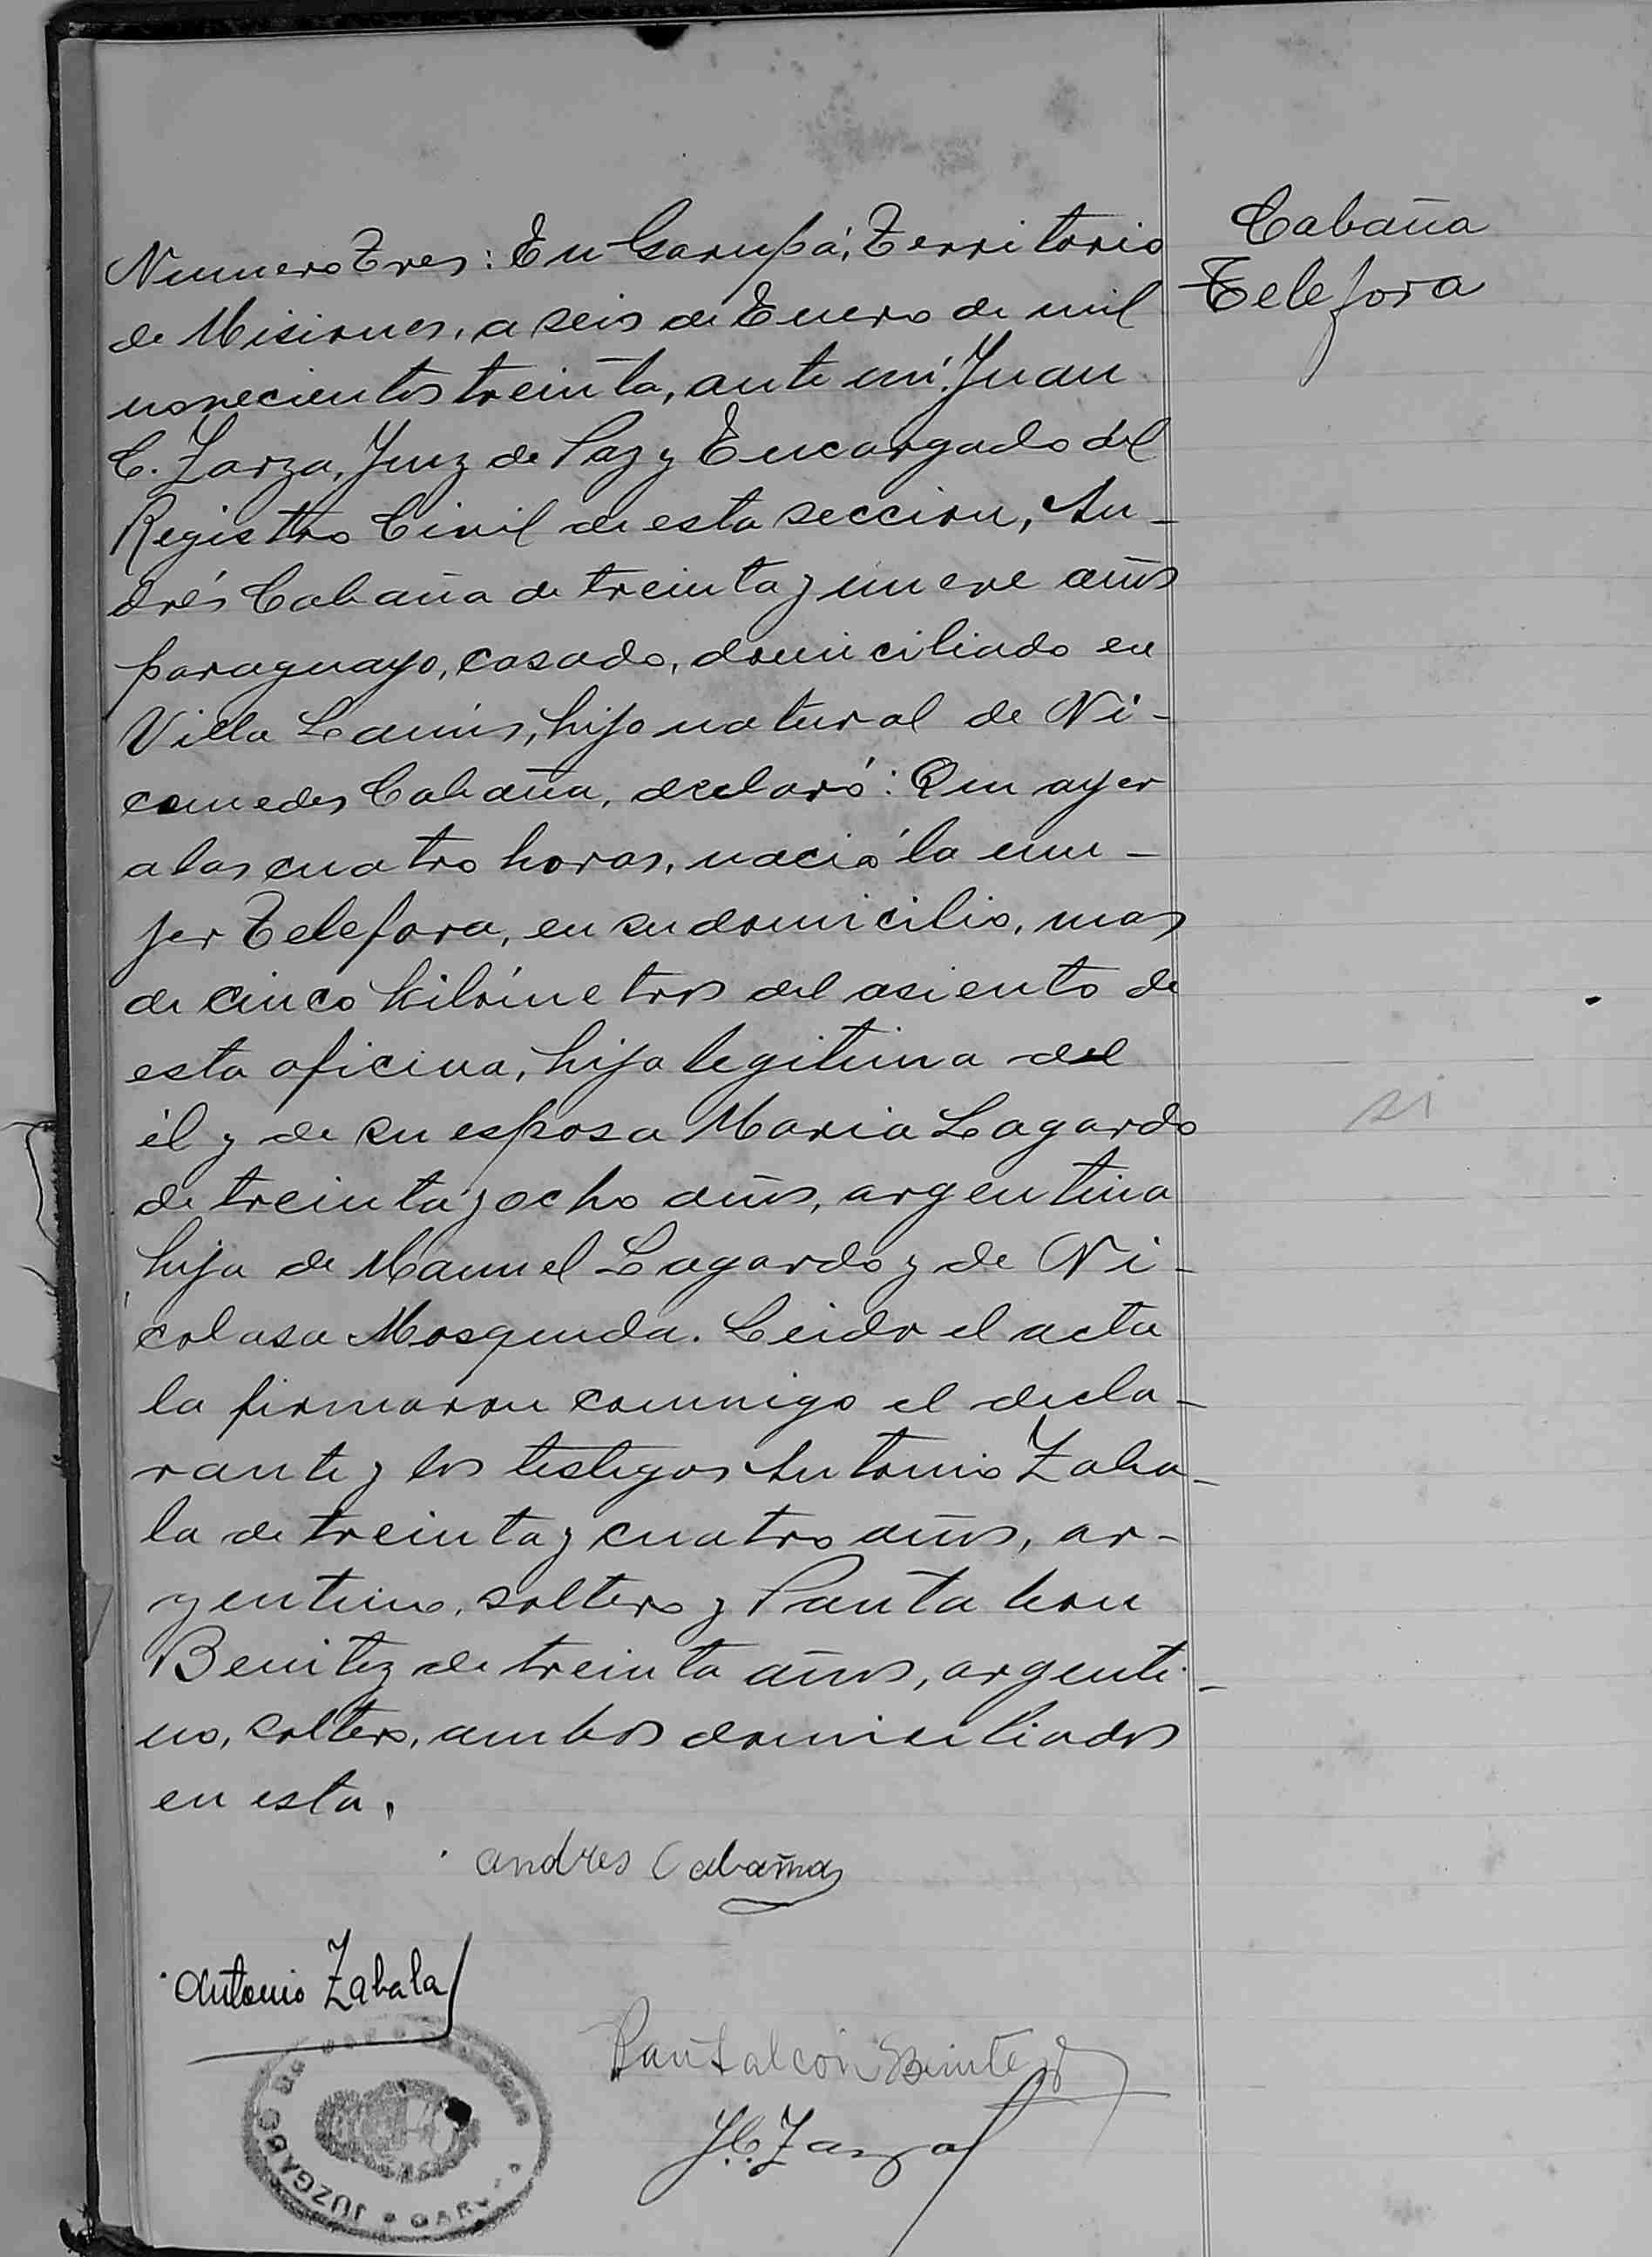 Cabaña
Telefora
Numero Tres: En Garupá, Territorio
de Misiones, a seis de Enero de mil
novecientos treinta, ante mí: Juan
C. Zarza, Juez de Paz y Encargado del
Registro Civil de esta seccion, An-
drés Cabaña de treinta y nueve años
paraguayo, casado, domiciliado en
Villa Lanús, hijo natural de Ni-
comedes Cabaña, declaró: Que ayer
a las cuatro horas, nació la mu-
jer Telefora, en su domicilio, mas
de cinco kilómetros del asiento de
esta oficina, hija legitima del
él y de su esposa Maria Lagardo
de treinta y ocho años, argentina
hija de Manuel Lagardo y de Ni-
colasa Mosqueda. Leido el acta
la firmaron conmigo el decla-
rante y los testigos Antonio Zaba-
la de treinta y cuatro años, ar-
gentino, soltero y Pantaleon
Benitez de treinta años, argenti-
no, soltero, ambos domiciliados
en esta.
si
andres Cabañas
Antonio Zabala
Pantaleon Benitez
J.C. Zarza
JUZGADO DE